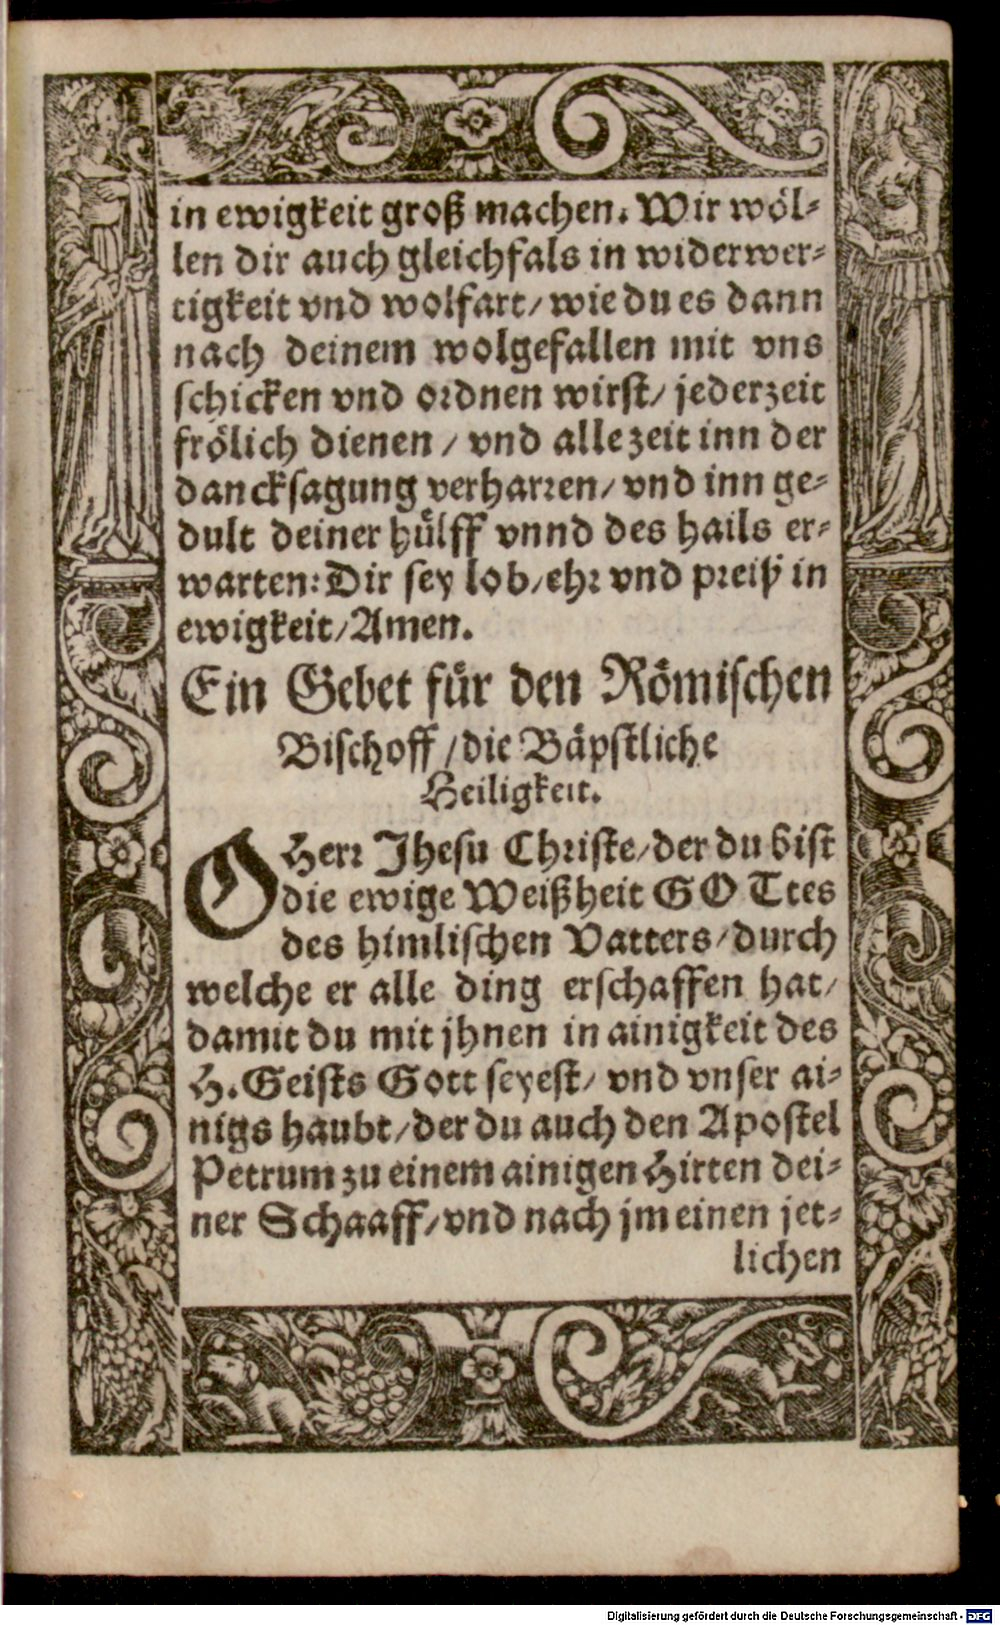 in ewigkeit groß machen. Wir wöl-
len dir auch gleichfals in widerwer-
tigkeit vnd wolfart/ wie du es dann
nach deinem wolgefallen mit vns
schicken vnd ordnen wirst/ jederzeit
frölich dienen / vnd allezeit inn der
dancksagung verharren/ vnd inn ge-
dult deiner hülff vnnd des hails er-
warten: Dir sey lob/ ehr vnd preiß in
ewigkeit/ Amen.
Ein Gebet für den Römischen
Bischoff / die Bäpstliche
Heiligkeit.
O Herr Jhesu Christe/ der du bist
die ewige Weißheit GOTtes
des himlischen Vatters/ durch
welche er alle ding erschaffen hat/
damit du mit jhnen in ainigkeit des
H. Geists Gott seyest/ vnd vnser ai-
nigs haubt/ der du auch den Apostel
Petrum zu einem ainigen Hirten dei-
ner Schaaff/ vnd nach jm einen jet-
lichen
Digitalisierung gefördert durch die Deutsche Forschungsgemeinschaft - DFG